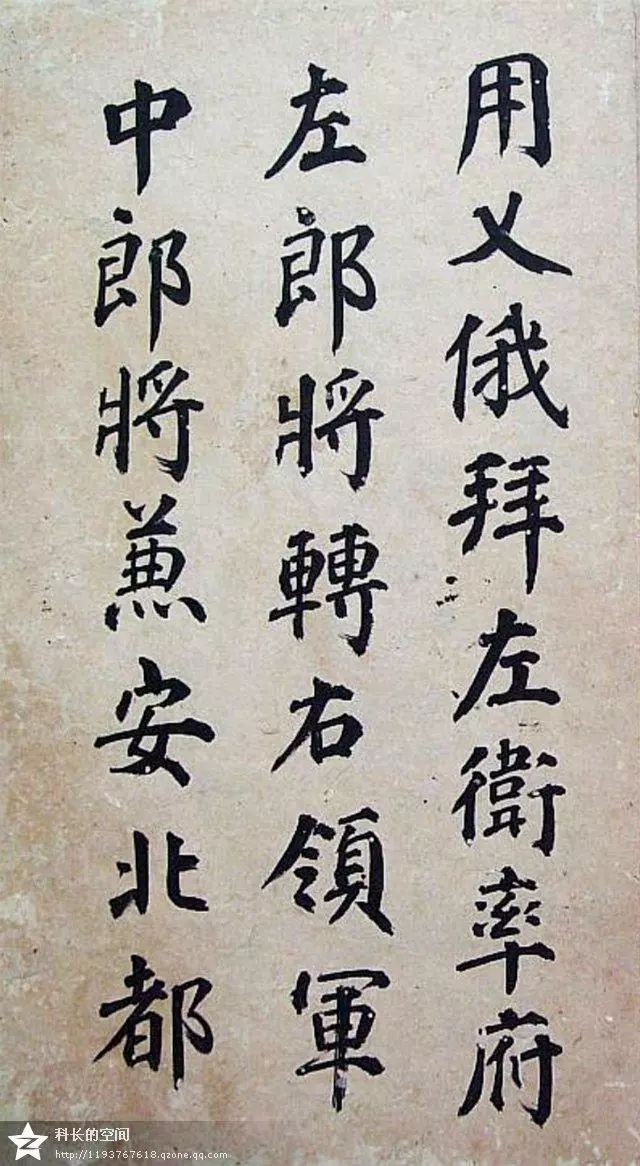 用乂俄拜左衛率府
左郎將轉右領軍
中郎將兼安北都
科长的空间
http://1193767618.qzone.qq.com